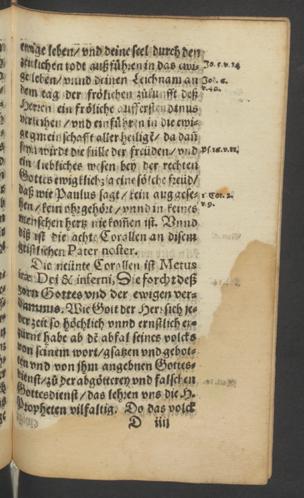 ewige leben/ vnd deine seel durch den
zeitlichen todt außführen in das ewi-
ge leben/ vnnd deinen Leichnam an
dem tag der frölichen zůkunfft deß
Herren ein fröliche aufferstendtnus
verleihen/ vnd einführen in die ewi-
ge gmeinschafft aller heiligē/ da dañ
sein wirdt die fülle der freuden/ vnd
ein liebliches wesen bey der rechten
Gottes ewigklich/ ja eine sölche freüd/
daß wie Paulus sagt/ kein aug gese-
hen/ kein ohr gehört/ vnnd in keines
menschen hertz nie kom̃en ist. Vnnd
diß ist die achte Corallen an disem
geistlichen Pater noster.
Die neünte Corallen ist Metus
Dei & inferni, Die forcht deß
zorn Gottes vnd der ewigen ver-
damnus. Wie Gott der Herr sich je-
der zeit so höchlich vnnd ernstlich er-
zürnt habe ab dē abfal seines volcks
von seinem wort/ gsatzen vnd gebot-
ten vnd von jhm angebnen Gottes-
dienst/ zů der abgötterey vnd falschen
Gottesdienst/ das lehren vns die H.
Propheten vilfaltig. Do das volck
D iiij
Jo. 5. v. 24
Joh. 6.
v. 40.
Ps. 16. v. 11.
1. Cor. 2.
v. 9.